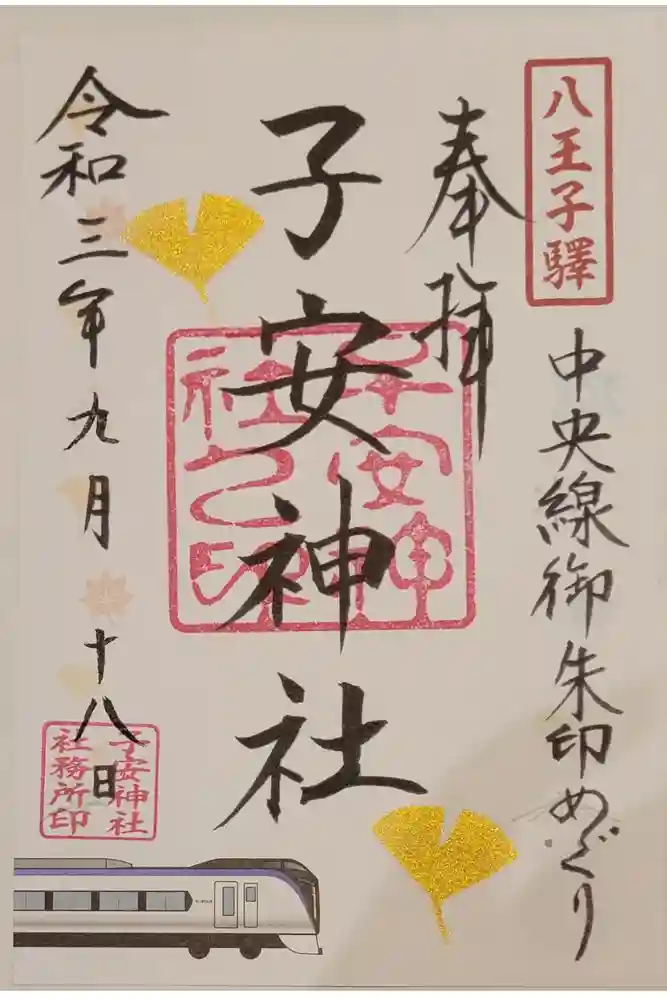 八王子驛
中央線御朱印めぐり
奉拝
子安神社
子安神
社之印
令和三年九月十八日
子安神社
社務所印